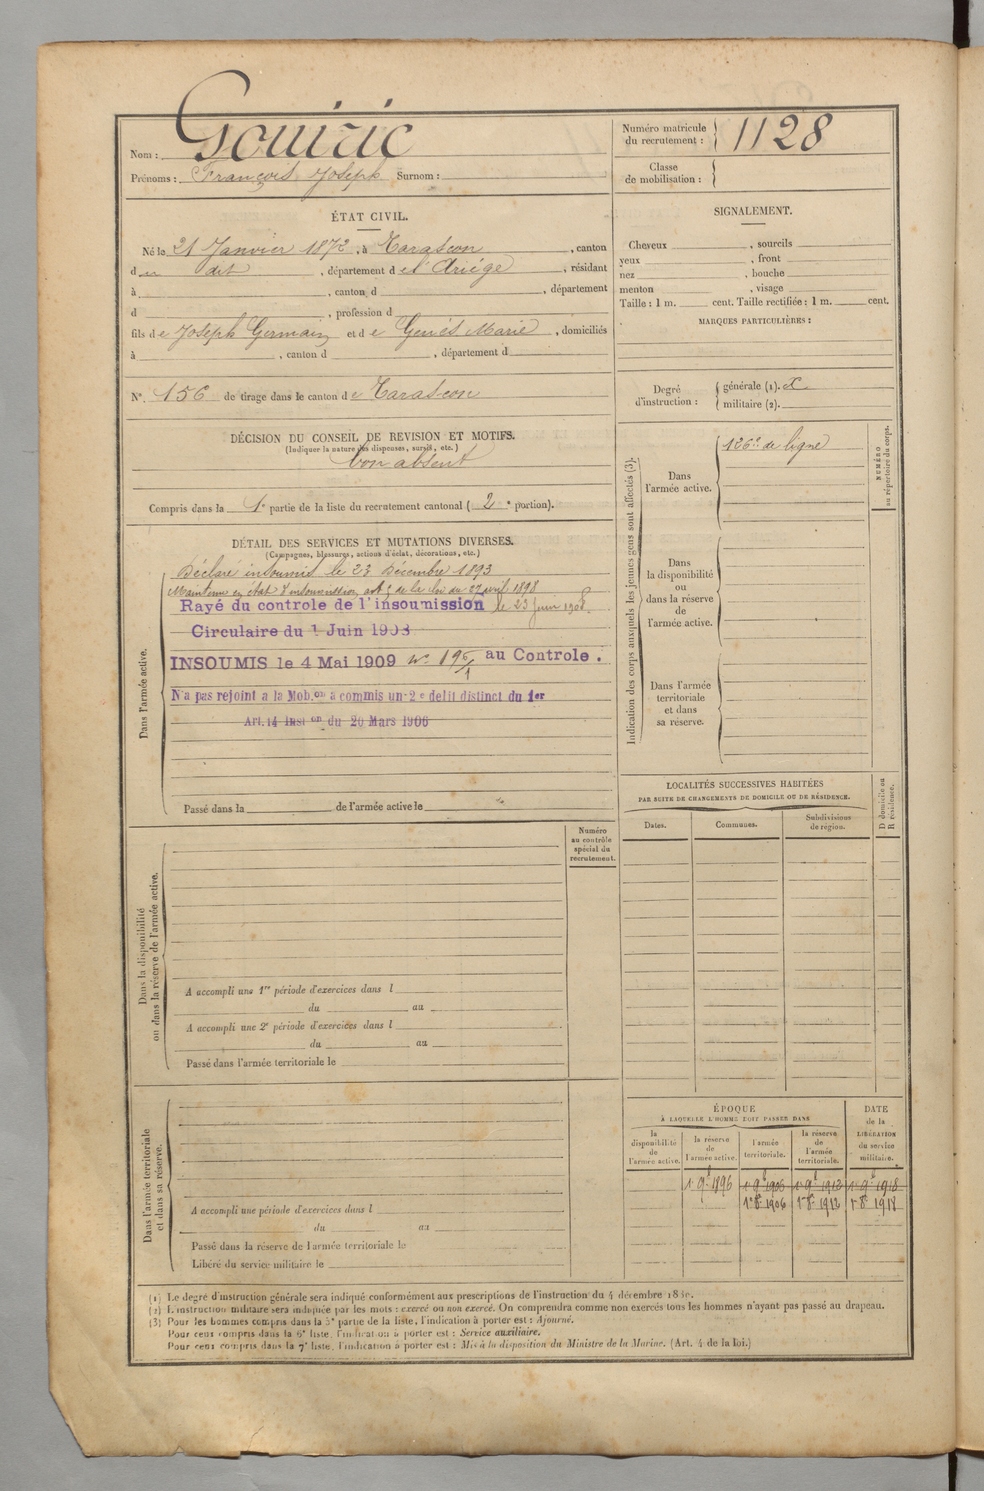 Nom : Gouiric
Prénoms : François Joseph Surnom :
Numéro matricule
du recrutement : 1128
Classe
de mobilisation :
ÉTAT CIVIL.
Né le 21 Janvier 1872, à Tarascon, canton
du dit, département de l'Ariège, résidant
à , canton d , département
d , profession d
fils de Joseph Germain et de Genès Marie, domiciliés
à , canton d , département d
N° 156 de tirage dans le canton de Tarascon
SIGNALEMENT.
Cheveux , sourcils
yeux , front
nez , bouche
menton , visage
Taille : 1 m. cent. Taille rectifiée : 1 m. cent.
MARQUES PARTICULIÈRES :
Degré
d'instruction :
générale (1). x
militaire (2).
DÉCISION DU CONSEIL DE REVISION ET MOTIFS.
(Indiquer la nature des dispenses, sursis, etc.)
bon absent
Compris dans la 1e partie de la liste du recrutement cantonal ( 2 e portion).
DÉTAIL DES SERVICES ET MUTATIONS DIVERSES.
(Campagnes, blessures, actions d'éclat, décorations, etc.)
Dans l'armée active.
Déclaré insoumis le 23 Décembre 1893
Maintenu en état d'insoumission art 5 de la loi du 27 avril 1898
Rayé du controle de l'insoumission le 23 juin 1908
Circulaire du 1 Juin 1908
INSOUMIS le 4 Mai 1909 N° 195/1 au Controle.
N'a pas rejoint a la Mob.on a commis un 2e delit distinct du 1er
Art. 14 Inst on du 20 Mars 1906
Passé dans la de l'armée active le
Indication des corps auxquels les jeunes gens sont affectés (3).
NUMÉRO
au répertoire du corps.
Dans
l'armée active.
126e de ligne
Dans
la disponibilité
ou
dans la réserve
de
l'armée active.
Dans l'armée
territoriale
et dans
sa réserve.
LOCALITÉS SUCCESSIVES HABITÉES
PAR SUITE DE CHANGEMENTS DE DOMICILE OU DE RÉSIDENCE.
Dates.
Communes.
Subdivisions
de région.
D domicile ou
R résidence.
Numéro
au contrôle
spécial du
recrutement.
Dans la disponibilité
ou dans la réserve de l'armée active.
A accompli une 1re période d'exercices dans l
du au
A accompli une 2e période d'exercices dans l
du au
Passé dans l'armée territoriale le
Dans l'armée territoriale
et dans sa réserve.
A accompli une période d'exercices dans l
du au
Passé dans la réserve de l'armée territoriale le
Libéré du service militaire le
ÉPOQUE
À LAQUELLE L'HOMME DOIT PASSER DANS
DATE
de la
LIBÉRATION
du service
militaire.
la
disponibilité
de
l'armée active.
la réserve
de
l'armée active.
l'armée
territoriale.
la réserve
de
l'armée
territoriale.
1 9bre 1896 1 9bre 1906 1 9bre 1912 1 9bre 1918
1er 8bre 1906 1er 8bre 1912 1er 8bre 1918
(1) Le degré d'instruction générale sera indiqué conformément aux prescriptions de l'instruction du 4 décembre
(2) L'instruction militaire sera indiquée par les mots : exercé ou non exercé. On comprendra comme non exercés tous les hommes n'ayant pas passé au drapeau.
(3) Pour les hommes compris dans la 5e partie de la liste, l'indication à porter est : Ajourné.
Pour ceux compris dans la 6e liste, l'indication à porter est : Service auxiliaire.
Pour ceux compris dans la 7e liste, l'indication à porter est : Mis à la disposition du Ministre de la Marine. (Art. 4 de la loi.)